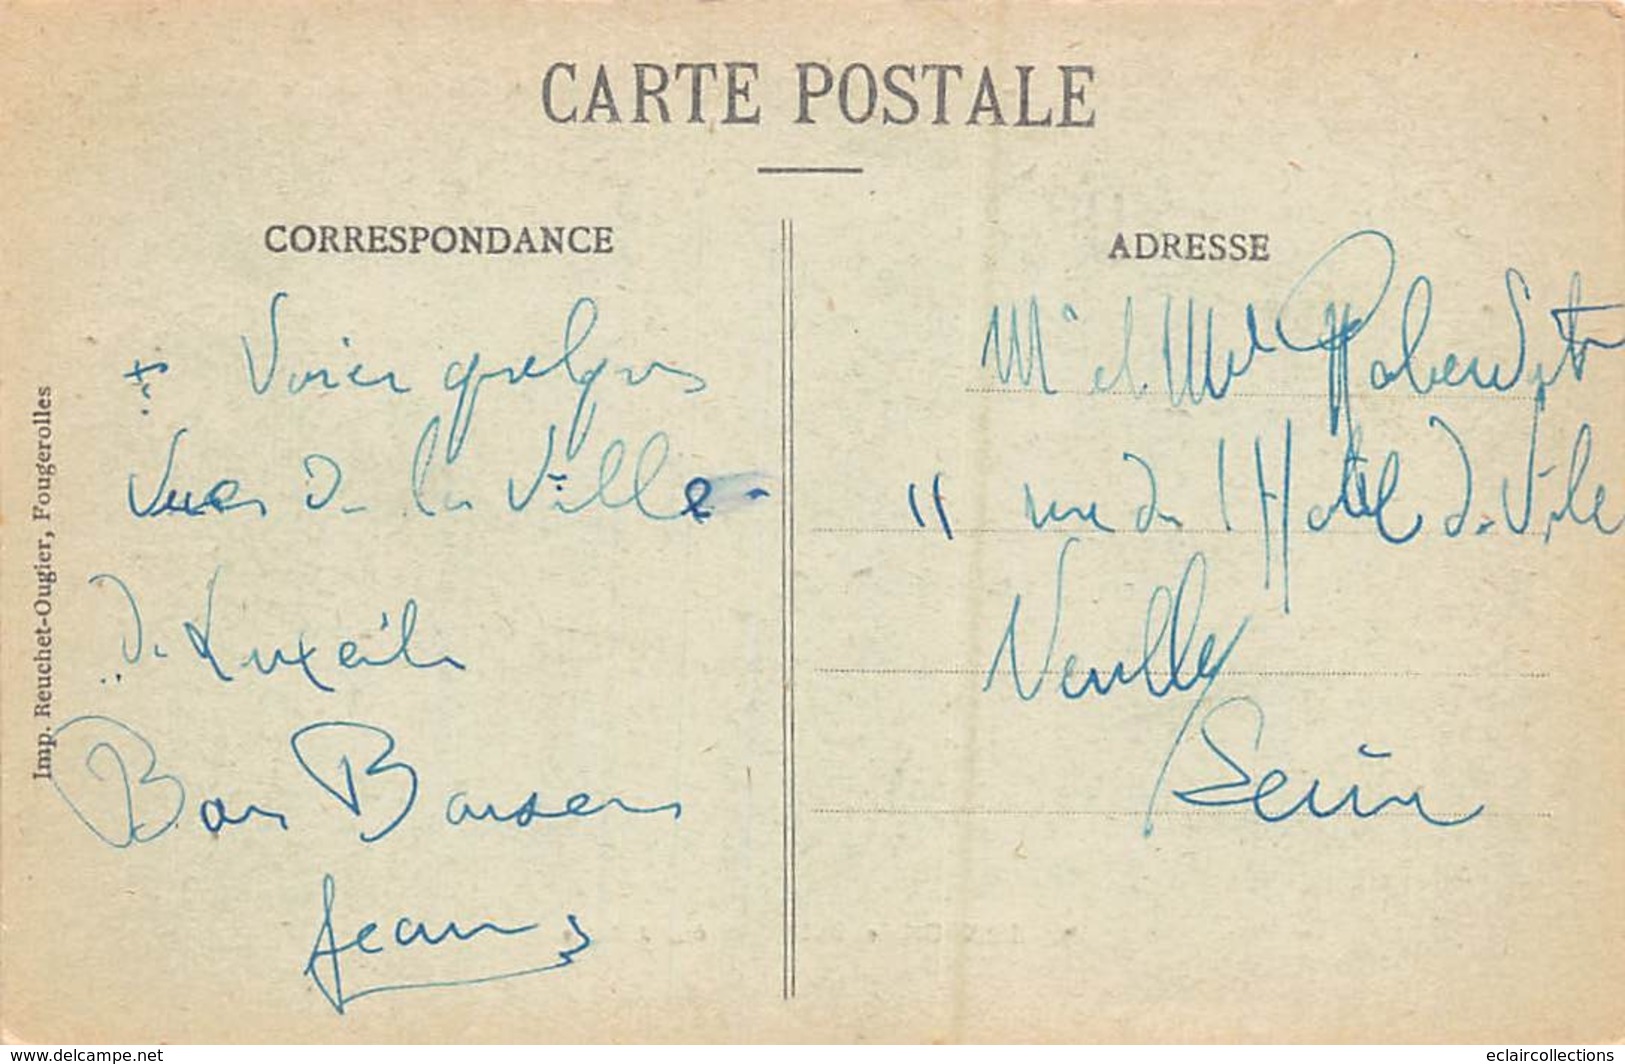 CARTE POSTALE
CORRESPONDANCE
Voici quelques
vues de la Ville
de Luxeuil
Bons Baisers
Jean
Imp. Reuchet-Ougier, Fougerolles
ADRESSE
Mr et Mme
11 rue de l'Hotel de Ville
Neuilly
Seine
www.delcampe.net
eclaircollections